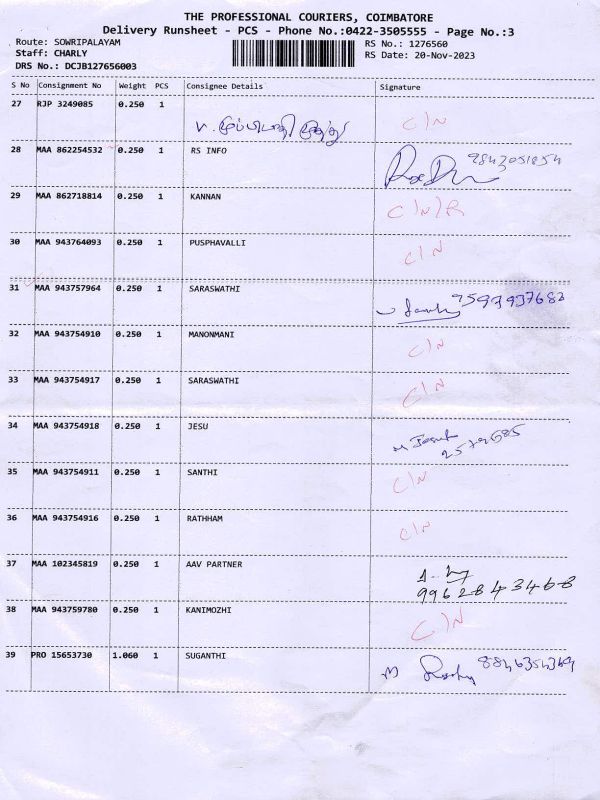 THE PROFESSIONAL COURIERS, COIMBATORE
Delivery Runsheet - PCS - Phone No.:0422-3505555 - Page No.:3
Route: SOWRIPALAYAM
Staff: CHARLY
DRS No.: DCJB127656003
RS No.: 1276560
RS Date: 20-Nov-2023
S No Consignment No Weight PCS Consignee Details Signature
27 RJP 3249085 0.250 1 C/N
28 MAA 862254532 0.250 1 RS INFO
29 MAA 862718814 0.250 1 KANNAN C/N/R
30 MAA 943764093 0.250 1 PUSPHAVALLI C/N
31 MAA 943757964 0.250 1 SARASWATHI
32 MAA 943754910 0.250 1 MANONMANI C/N
33 MAA 943754917 0.250 1 SARASWATHI C/N
34 MAA 943754918 0.250 1 JESU
35 MAA 943754911 0.250 1 SANTHI C/N
36 MAA 943754916 0.250 1 RATHHAM C/N
37 MAA 102345819 0.250 1 AAV PARTNER
9962843468
38 MAA 943759780 0.250 1 KANIMOZHI C/N
39 PRO 15653730 1.060 1 SUGANTHI